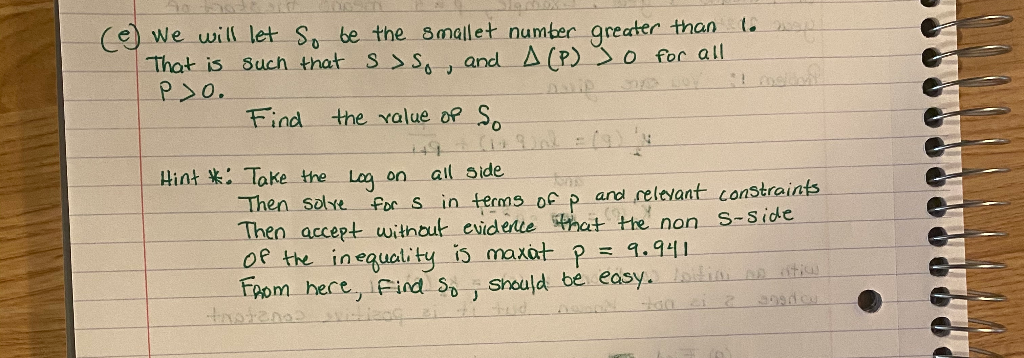 (e) We will let S₀ be the smallet number greater than 1.
That is such that S > S₀, and Δ(P) > 0 for all
P > 0.
Find the value of S₀
Hint *: Take the Log on all side
Then solve for s in terms of p and relevant constraints
Then accept without evidence that the non S-side
of the inequality is maxat p = 9.941
From here, find S₀, should be easy.